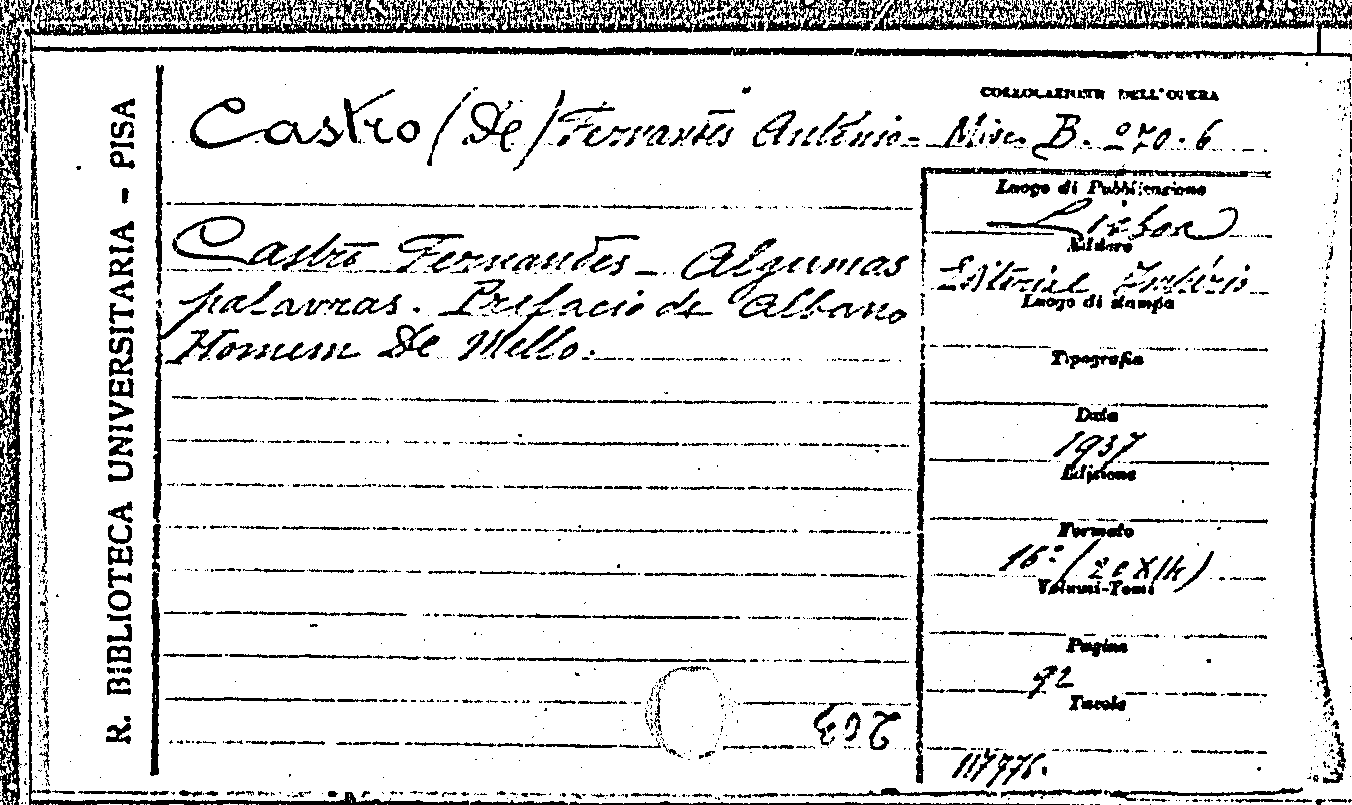 R. BIBLIOTECA UNIVERSITARIA - PISA
Castro (De) Fernandes António -
COLLOCAZIONE DELL'OPERA
Misc. B. 270.6
Castro Fernandes - Algumas
palavras. Prefacio de Albano
Homem De Mello.
Luogo di Pubblicazione
Lisboa
Editore
Editorial Império
Luogo di stampa
Tipografia
Data
1937
Edizione
Formato
16º (20X14)
Volumi-Tomi
Pagine
92
Tavole
117976.
203